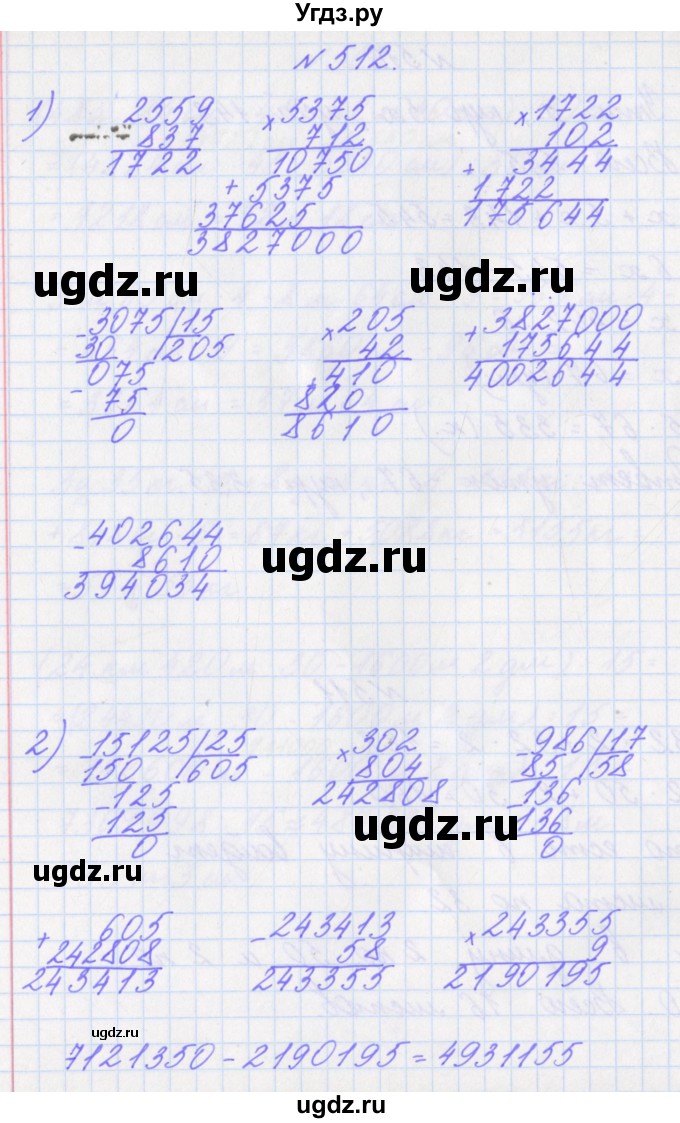 Угдз.ру
N 512.
1) 2559 × 5375 × 1722
- 837 712 102
1722 10750 + 3444
+ 5375 1722
37625 175644
3827000
ugdz.ru ugdz.ru
- 3075 | 15 × 205 + 3827000
30 | 205 42 175644
075 410 4002644
- 75 820
0 8610
- 402644
8610
394034
ugdz.ru
2) - 15125 | 25 × 302 - 986 | 17
150 | 605 804 85 | 58
- 125 242808 - 136
125 136
0 0
ugdz.ru
ugdz.ru
+ 605 - 243413 × 243355
242808 58 9
243413 243355 2190195
ugdz.ru
7121350 - 2190195 = 4931155
ugdz.ru